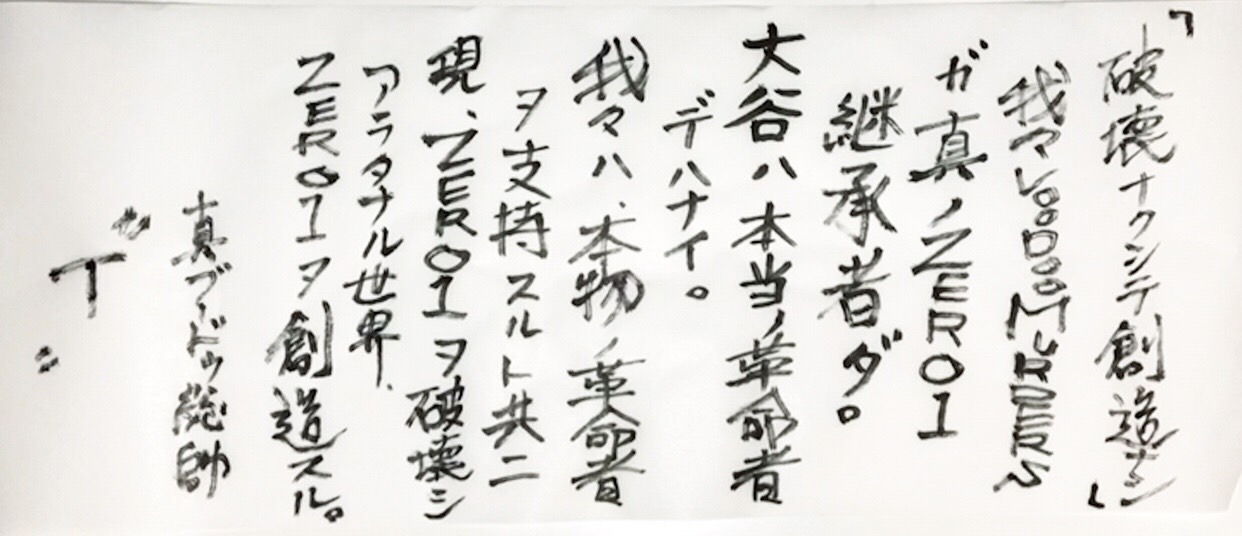 「破壊ナクシテ創造ナシ」
我々VooDooMURDERS
ガ真ノZERO1
継承者ダ。
大谷ハ本当ノ革命者
デハナイ。
我々ハ、本物ノ革命者
ヲ支持スルト共ニ
現、ZERO1ヲ破壊シ
アラタナル世界、
ZERO1ヲ創造スル。
真ブードゥ総帥
"T"